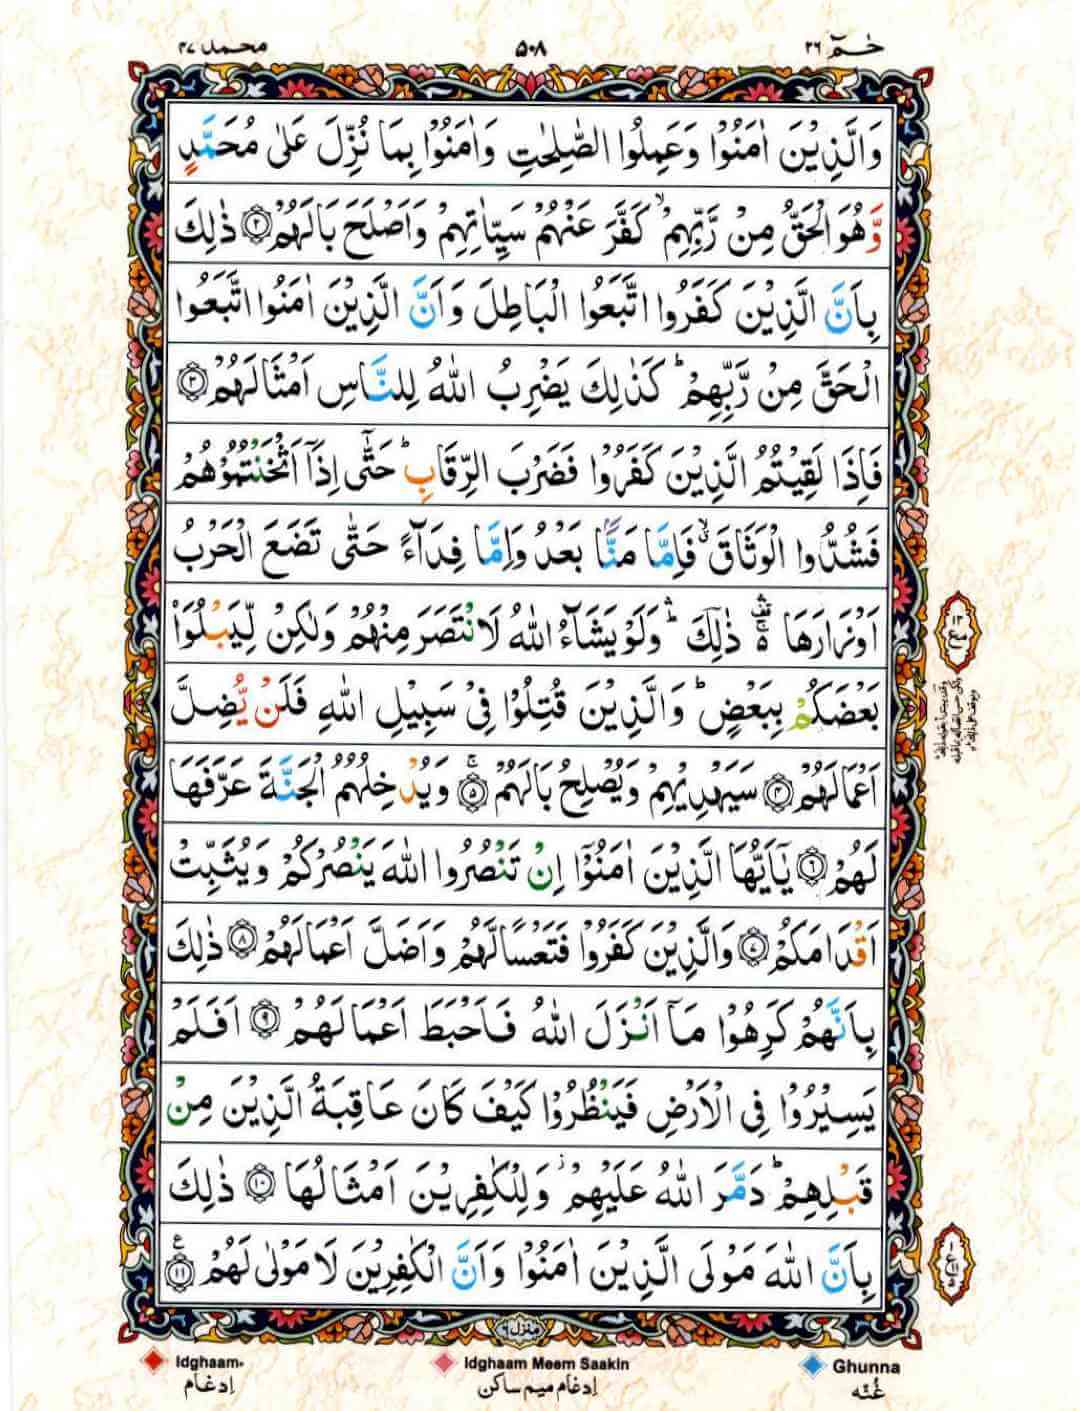 حٰمٓ ٢٦
٥٠٨
محمد ٤٧
وَالَّذِيْنَ اٰمَنُوْا وَعَمِلُوا الصّٰلِحٰتِ وَاٰمَنُوْا بِمَا نُزِّلَ عَلٰى مُحَمَّدٍ
وَّهُوَ الْحَقُّ مِنْ رَّبِّهِمْ ۙ كَفَّرَ عَنْهُمْ سَيِّاٰتِهِمْ وَاَصْلَحَ بَالَهُمْ ﴿٢﴾ ذٰلِكَ
بِاَنَّ الَّذِيْنَ كَفَرُوا اتَّبَعُوا الْبَاطِلَ وَاَنَّ الَّذِيْنَ اٰمَنُوا اتَّبَعُوا
الْحَقَّ مِنْ رَّبِّهِمْ ؕ كَذٰلِكَ يَضْرِبُ اللّٰهُ لِلنَّاسِ اَمْثَالَهُمْ ﴿٣﴾
فَاِذَا لَقِيْتُمُ الَّذِيْنَ كَفَرُوْا فَضَرْبَ الرِّقَابِ ؕ حَتّٰۤى اِذَاۤ اَثْخَنْتُمُوْهُمْ
فَشُدُّوا الْوَثَاقَ ۙ فَاِمَّا مَنًّۢا بَعْدُ وَاِمَّا فِدَآءً حَتّٰى تَضَعَ الْحَرْبُ
اَوْزَارَهَا ۛ۬ۚ ذٰلِكَ ۛؕ وَلَوْ يَشَآءُ اللّٰهُ لَانْتَصَرَ مِنْهُمْ وَلٰكِنْ لِّيَبْلُوَا۟
بَعْضَكُمْ بِبَعْضٍ ؕ وَالَّذِيْنَ قُتِلُوْا فِيْ سَبِيْلِ اللّٰهِ فَلَنْ يُّضِلَّ
اَعْمَالَهُمْ ﴿٤﴾ سَيَهْدِيْهِمْ وَيُصْلِحُ بَالَهُمْ ﴿٥﴾ۚ وَيُدْخِلُهُمُ الْجَنَّةَ عَرَّفَهَا
لَهُمْ ﴿٦﴾ يٰۤاَيُّهَا الَّذِيْنَ اٰمَنُوْۤا اِنْ تَنْصُرُوا اللّٰهَ يَنْصُرْكُمْ وَيُثَبِّتْ
اَقْدَامَكُمْ ﴿٧﴾ وَالَّذِيْنَ كَفَرُوْا فَتَعْسًا لَّهُمْ وَاَضَلَّ اَعْمَالَهُمْ ﴿٨﴾ ذٰلِكَ
بِاَنَّهُمْ كَرِهُوْا مَاۤ اَنْزَلَ اللّٰهُ فَاَحْبَطَ اَعْمَالَهُمْ ﴿٩﴾ اَفَلَمْ
يَسِيْرُوْا فِى الْاَرْضِ فَيَنْظُرُوْا كَيْفَ كَانَ عَاقِبَةُ الَّذِيْنَ مِنْ
قَبْلِهِمْ ؕ دَمَّرَ اللّٰهُ عَلَيْهِمْ ۫ وَلِلْكٰفِرِيْنَ اَمْثَالُهَا ﴿١٠﴾ ذٰلِكَ
بِاَنَّ اللّٰهَ مَوْلَى الَّذِيْنَ اٰمَنُوْا وَاَنَّ الْكٰفِرِيْنَ لَا مَوْلٰى لَهُمْ ﴿١١﴾ ع
منزل ٦
Idghaam Idghaam Meem Saakin Ghunna
اِدغام اِدغام میم ساکن غُنّه